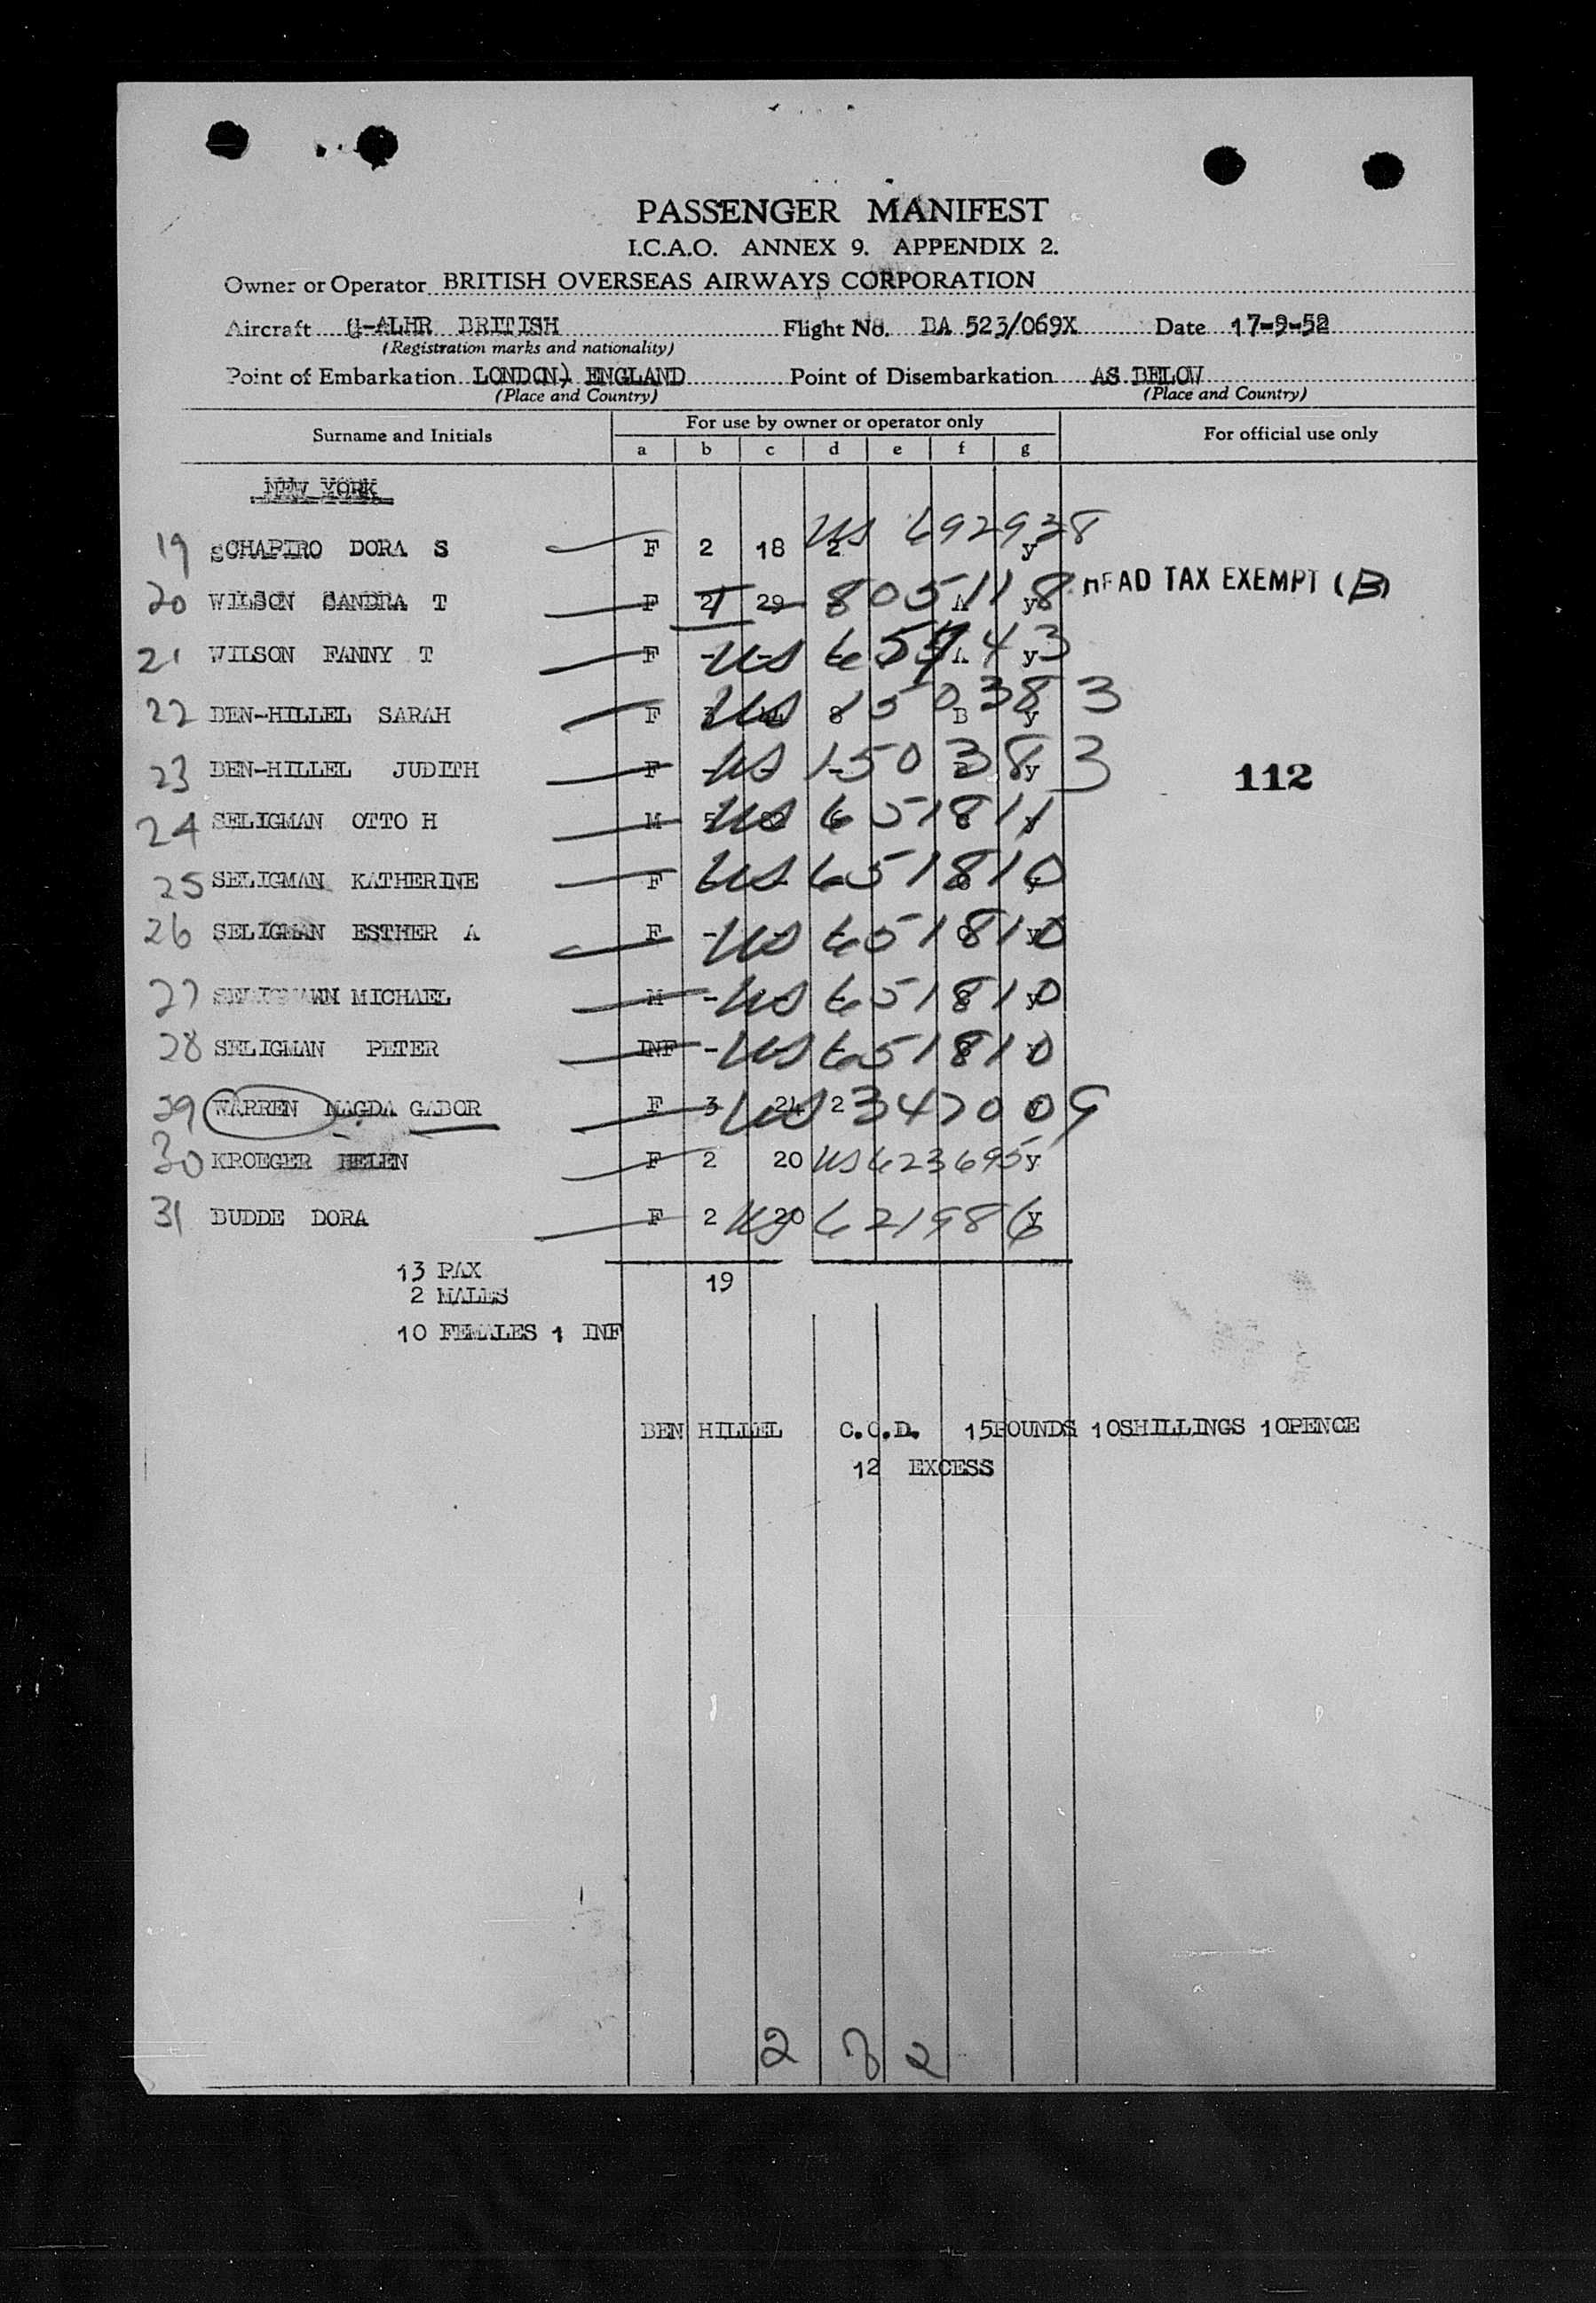 PASSENGER MANIFEST
I.C.A.O. ANNEX 9. APPENDIX 2.
Owner or Operator BRITISH OVERSEAS AIRWAYS CORPORATION
Aircraft G-ALHR BRITISH Flight No. BA 523/069X Date 17-9-52
(Registration marks and nationality)
Point of Embarkation LONDON, ENGLAND Point of Disembarkation AS BELOW
(Place and Country) (Place and Country)
Surname and Initials For use by owner or operator only For official use only
a b c d e f g
NEW YORK
19 SCHAPIRO DORA S F 2 18 2 US 692938 y
20 WILSON SANDRA T F 21 29 805118 y HEAD TAX EXEMPT (B)
21 WILSON FANNY T F - US y
22 BEN-HILLEL SARAH F US 150383 B y
23 BEN-HILLEL JUDITH F - US 150383 y
112
24 SELIGMAN OTTO H M 5 US 651811 y
25 SELIGMAN KATHERINE F US 651810
26 SELIGMAN ESTHER A F - US 651810 y
27 SELIGMANN MICHAEL M - US 651810 y
28 SELIGMAN PETER INF - US 651810
29 WARREN MAGDA GABOR F 3 24 2 US 347009
30 KROEGER HELEN F 2 20 US 623695 y
31 BUDDE DORA F 2 20 US 621986 y
13 PAX 19
2 MALES
10 FEMALES 1 INF
BEN HILLEL C.O.D. 15POUNDS 10SHILLINGS 10PENCE
12 EXCESS
2 2